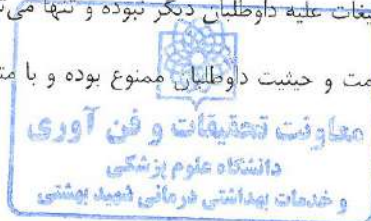 یغات علیه داوطلبان دیگر نبوده و تنها می‌
مت و حیثیت داوطلبان ممنوع بوده و با مت
معاونت تحقیقات و فن آوری
دانشگاه علوم پزشکی
و خدمات بهداشتی درمانی شهید بهشتی